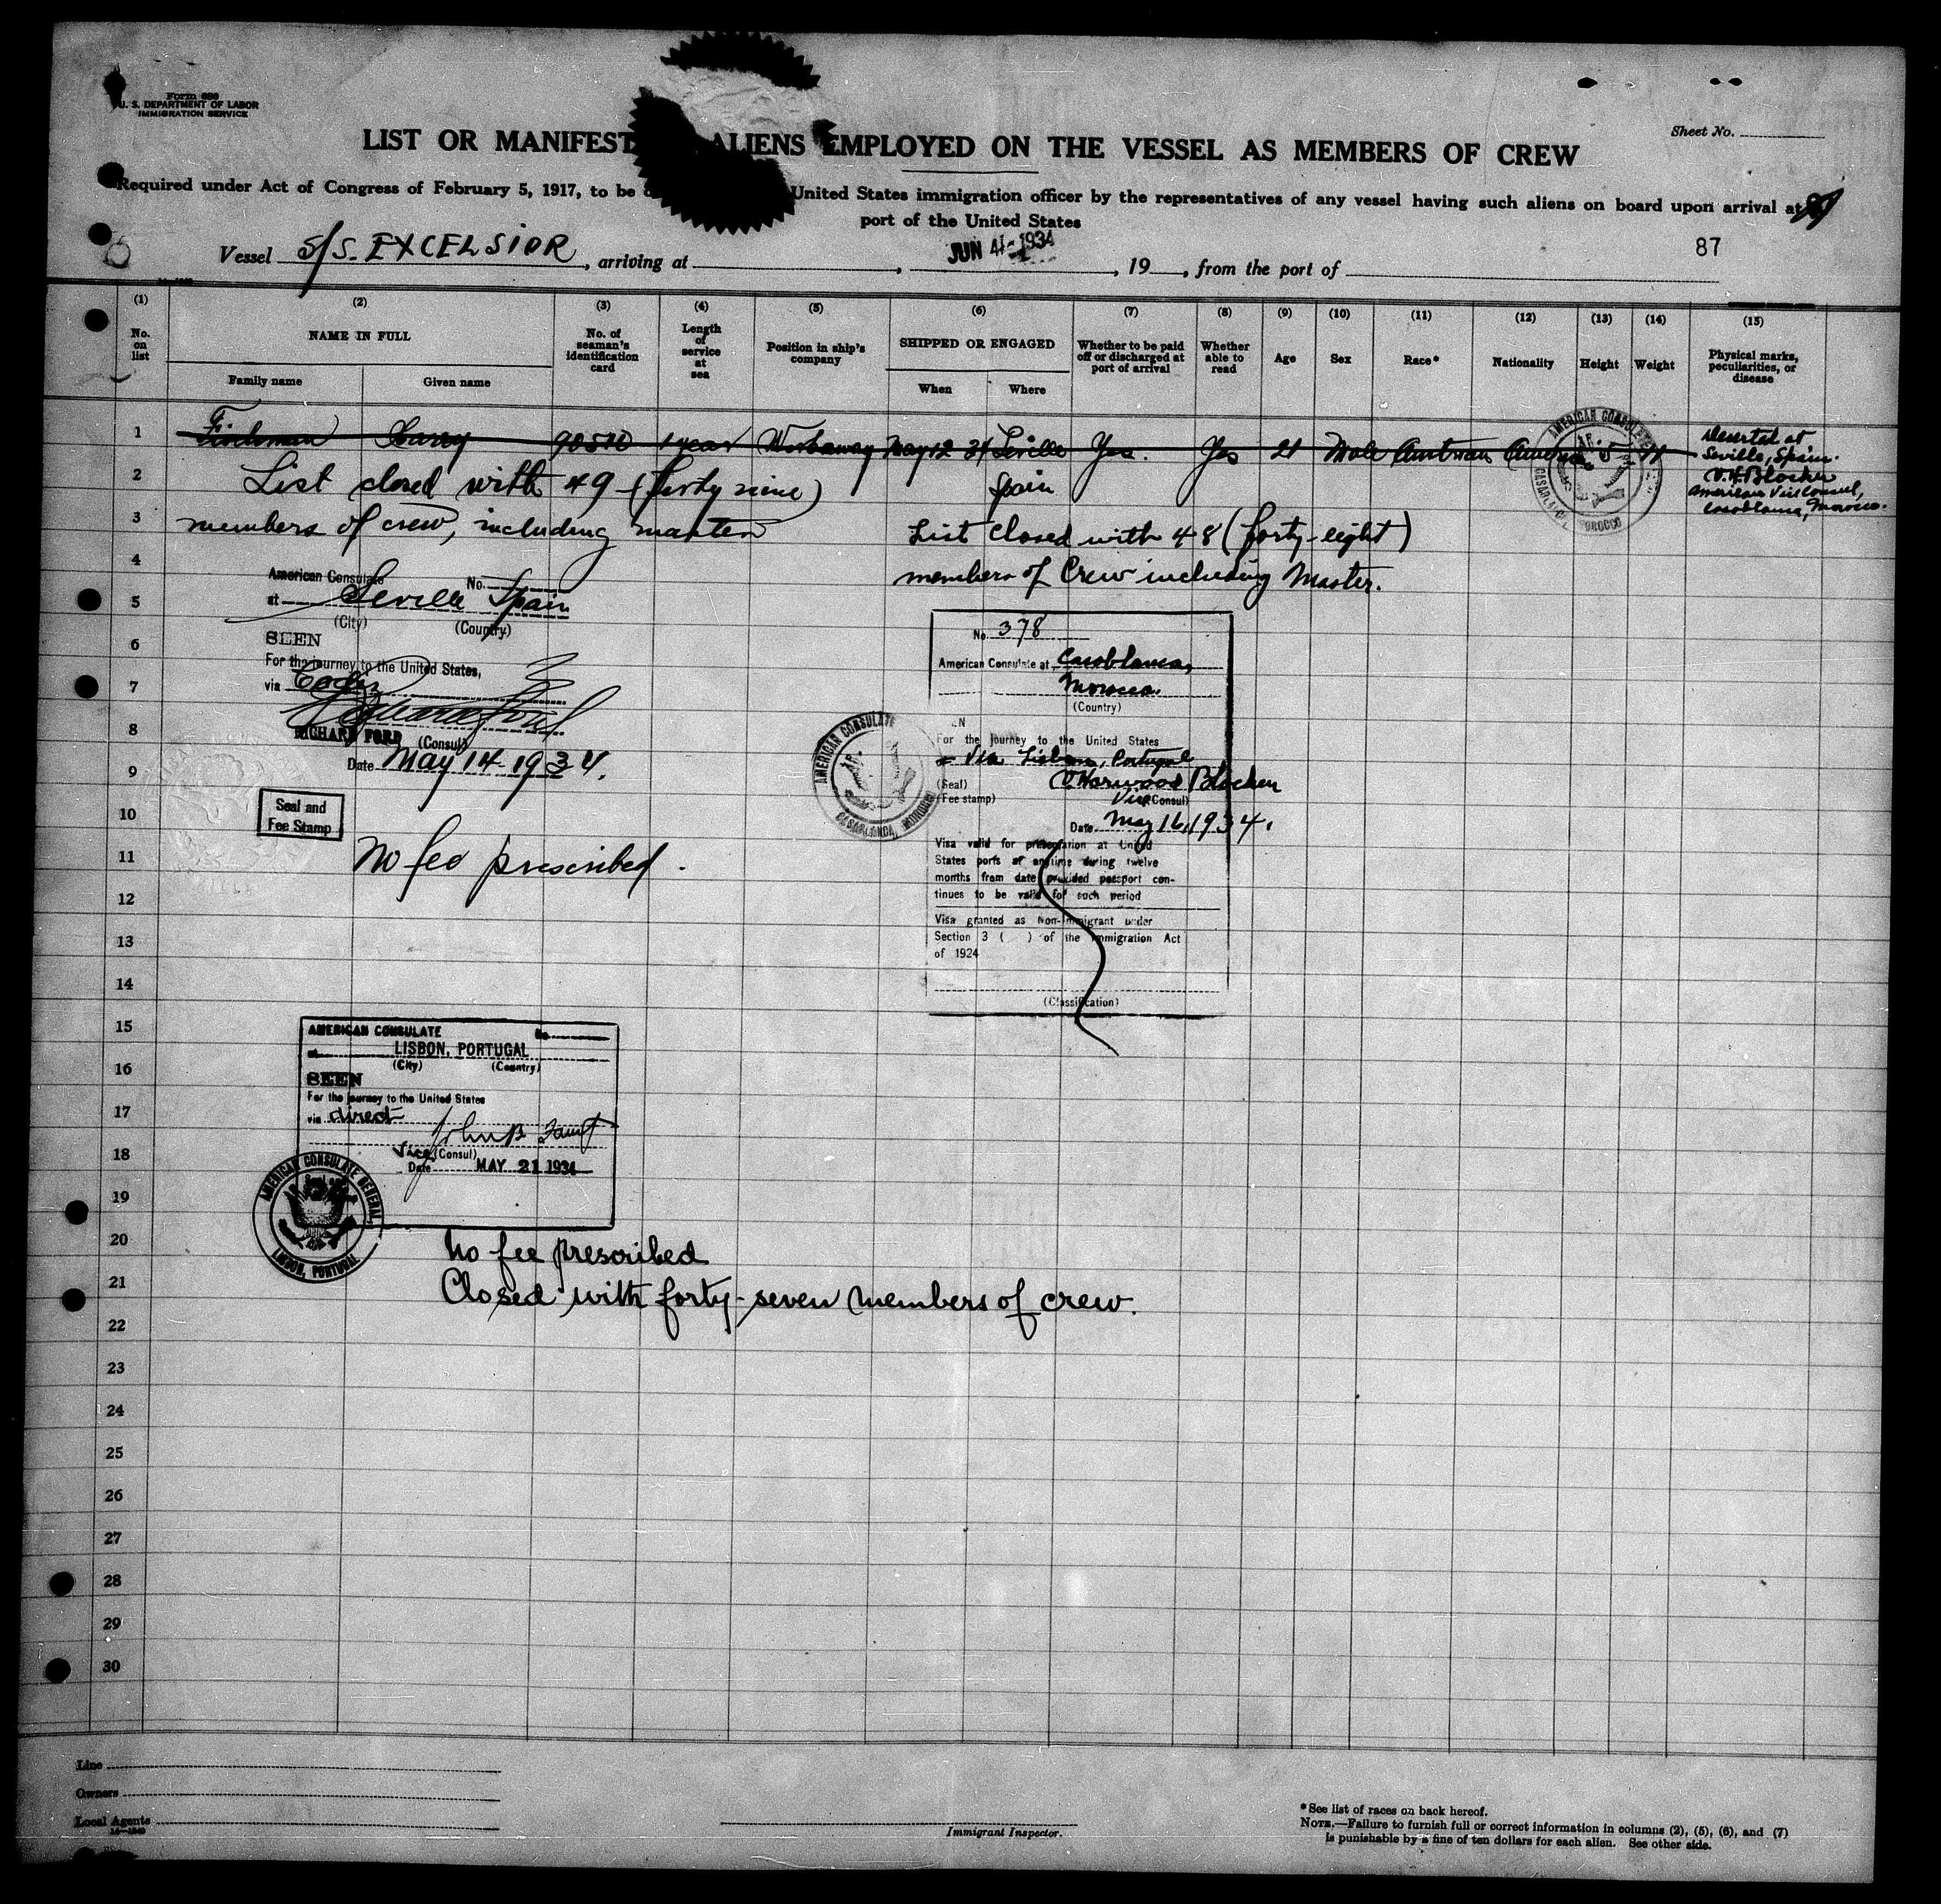 Form 680
U. S. DEPARTMENT OF LABOR
IMMIGRATION SERVICE
Sheet No.
LIST OR MANIFEST ALIENS EMPLOYED ON THE VESSEL AS MEMBERS OF CREW
Required under Act of Congress of February 5, 1917, to be United States immigration officer by the representatives of any vessel having such aliens on board upon arrival at
port of the United States
87
Vessel S/S. EXCELSIOR, arriving at , JUN 4 - 1934, 19 , from the port of
(1) (2) (3) (4) (5) (6) (7) (8) (9) (10) (11) (12) (13) (14) (15)
No. on list
NAME IN FULL
Family name
Given name
No. of seaman's identification card
Length of service at sea
Position in ship's company
SHIPPED OR ENGAGED
When
Where
Whether to be paid off or discharged at port of arrival
Whether able to read
Age
Sex
Race*
Nationality
Height
Weight
Physical marks, peculiarities, or disease
1 1 year Workaway May 12 34 Seville Yes. Yes 21 Male Austrian 5
Spain
Deserted at
Seville, Spain.
V.H. Blocker
American Vice Consul,
Casablanca, Morocco.
AMERICAN CONSULATE
CASABLANCA, MOROCCO
2 List closed with 49 (forty nine)
3 members of crew, including master
List closed with 48 (forty-eight)
members of Crew including Master.
4
American Consulate No.
5
at Seville Spain
(City) (Country)
6
SEEN
For the journey to the United States,
7
via Cadiz
8
RICHARD FORD (Consul)
9
Date May 14 1934.
10
Seal and
Fee Stamp
11
No fee prescribed.
No. 378
American Consulate at Casablanca,
Morocco.
(Country)
For the journey to the United States
Via Lisbon, Portugal
(Seal) V Harwood Blocker
(Fee stamp) Vice (Consul)
Date May 16, 1934.
AMERICAN CONSULATE
CASABLANCA, MOROCCO
Visa valid for presentation at United
States ports at anytime during twelve
months from date provided passport con-
tinues to be valid for such period
Visa granted as Non-Immigrant under
Section 3 ( ) of the Immigration Act
of 1924
(Classification)
12
13
14
15
AMERICAN CONSULATE No.
at LISBON, PORTUGAL
(City) (Country)
16
SEEN
For the journey to the United States
17
via direct
John B Faust
18
Vice (Consul)
Date MAY 21 1934
AMERICAN CONSULATE GENERAL,
LISBON, PORTUGAL
19
20
No fee prescribed
21
Closed with forty-seven members of crew.
22
23
24
25
26
27
28
29
30
Line
Owners
Local Agents
Immigrant Inspector.
* See list of races on back hereof.
NOTE.—Failure to furnish full or correct information in columns (2), (5), (6), and (7)
is punishable by a fine of ten dollars for each alien. See other side.